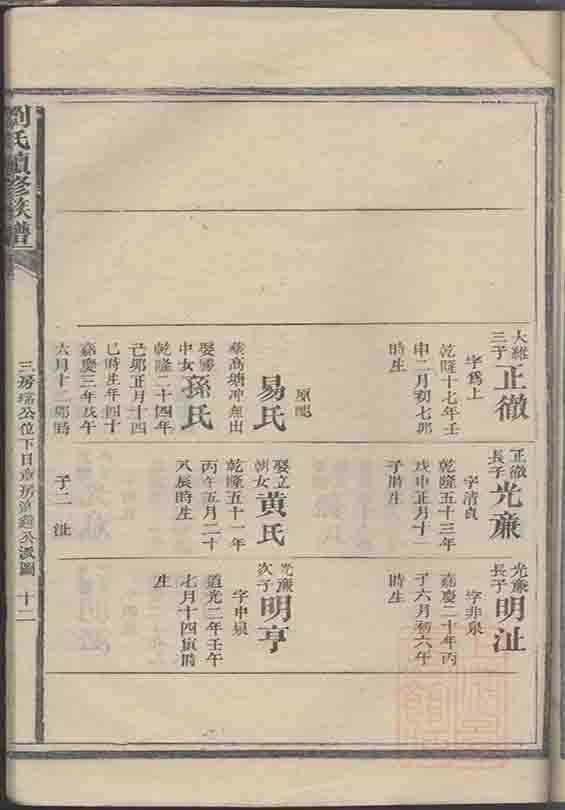 劉氏續修族譜
大維
三子
正徹
字爲上
乾隆十七年壬
申二月初七卯
時生
原配
易氏
葬高塘冲無出
娶霱
中女
孫氏
乾隆二十四年
己卯正月十四
巳時生年四十
嘉慶三年戊午
六月十二卯時
正徹
長子
光廉
字清貞
乾隆五十三年
戊申正月十二
子時生
娶立
朝女
黃氏
乾隆五十一年
丙午五月二十
八辰時生
子二 沚
光廉
長子
明沚
字非泉
嘉慶二十年丙
子六月初六午
時生
光廉
次子
明亨
字中泉
道光二年壬午
七月十四寅時
生
三房
公位下日章房
公派圖
十二